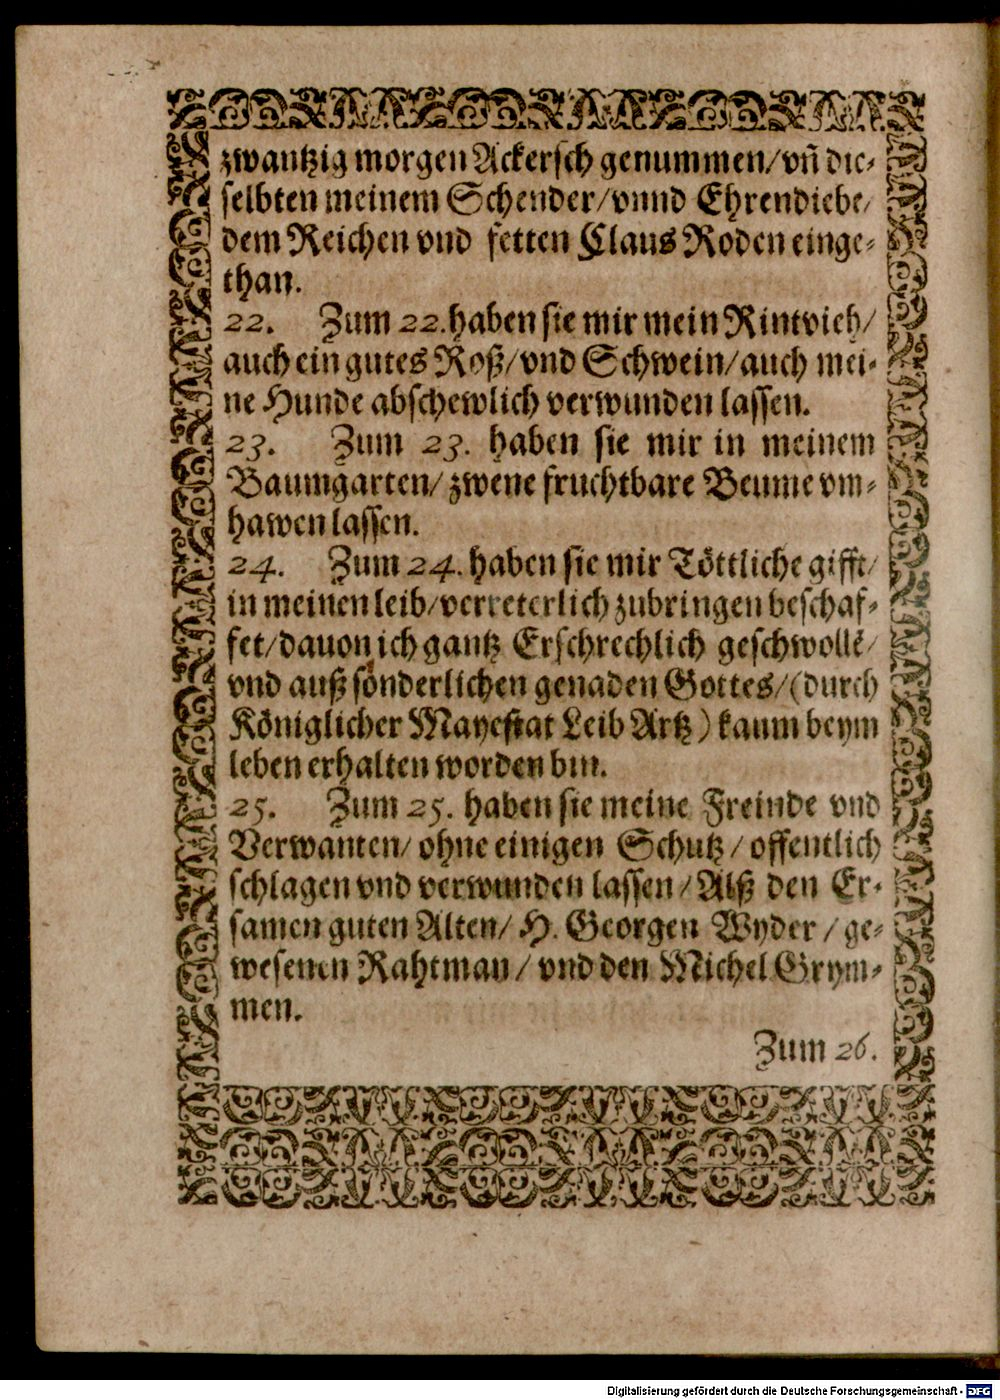 zwantzig morgen Ackersch genummen/vñ die⸗
selbten meinem Schender/vnnd Ehrendiebe/
dem Reichen vnd fetten Claus Roden einge⸗
than.
22. Zum 22. haben sie mir mein Rintvieh/
auch ein gutes Roß/vnd Schwein/auch mei⸗
ne Hunde abschewlich verwunden lassen.
23. Zum 23. haben sie mir in meinem
Baumgarten/ zwene fruchtbare Beume vm⸗
hawen lassen.
24. Zum 24. haben sie mir Töttliche gifft/
in meinen leib/verreterlich zubringen beschaf⸗
fet/dauon ich gantz Erschrechlich geschwollẽ/
vnd auß sonderlichen genaden Gottes/(durch
Königlicher Mayestat Leib Artz) kaum beym
leben erhalten worden bin.
25. Zum 25. haben sie meine Freinde vnd
Verwanten/ ohne einigen Schutz/ offentlich
schlagen vnd verwunden lassen/Alß den Er⸗
samen guten Alten/ H. Georgen Wyder/ ge⸗
wesenen Rahtman/ vnd den Michel Grym⸗
men.
Zum 26.
Digitalisierung gefördert durch die Deutsche Forschungsgemeinschaft - DFG